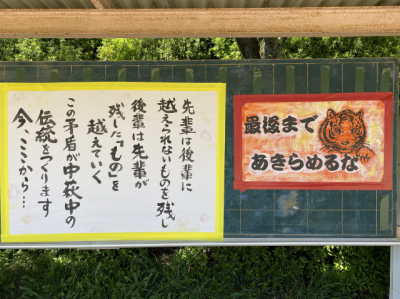 先輩は後輩に
越えられないものを残し
後輩は先輩が
残した「もの」を
越えていく
この矛盾が中萩中の
伝統をつくります
今、ここから…
最後まで
あきらめるな